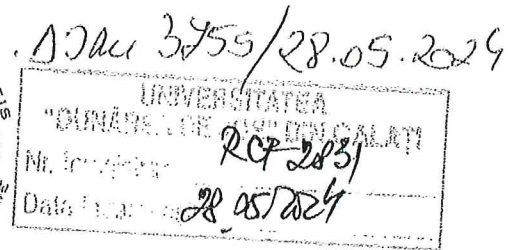 3755/28.05.2024
UNIVERSITATEA
"DUNĂREA DE JOS" DIN GALAȚI
Nr. RCP-2831
Data 28 05/2024